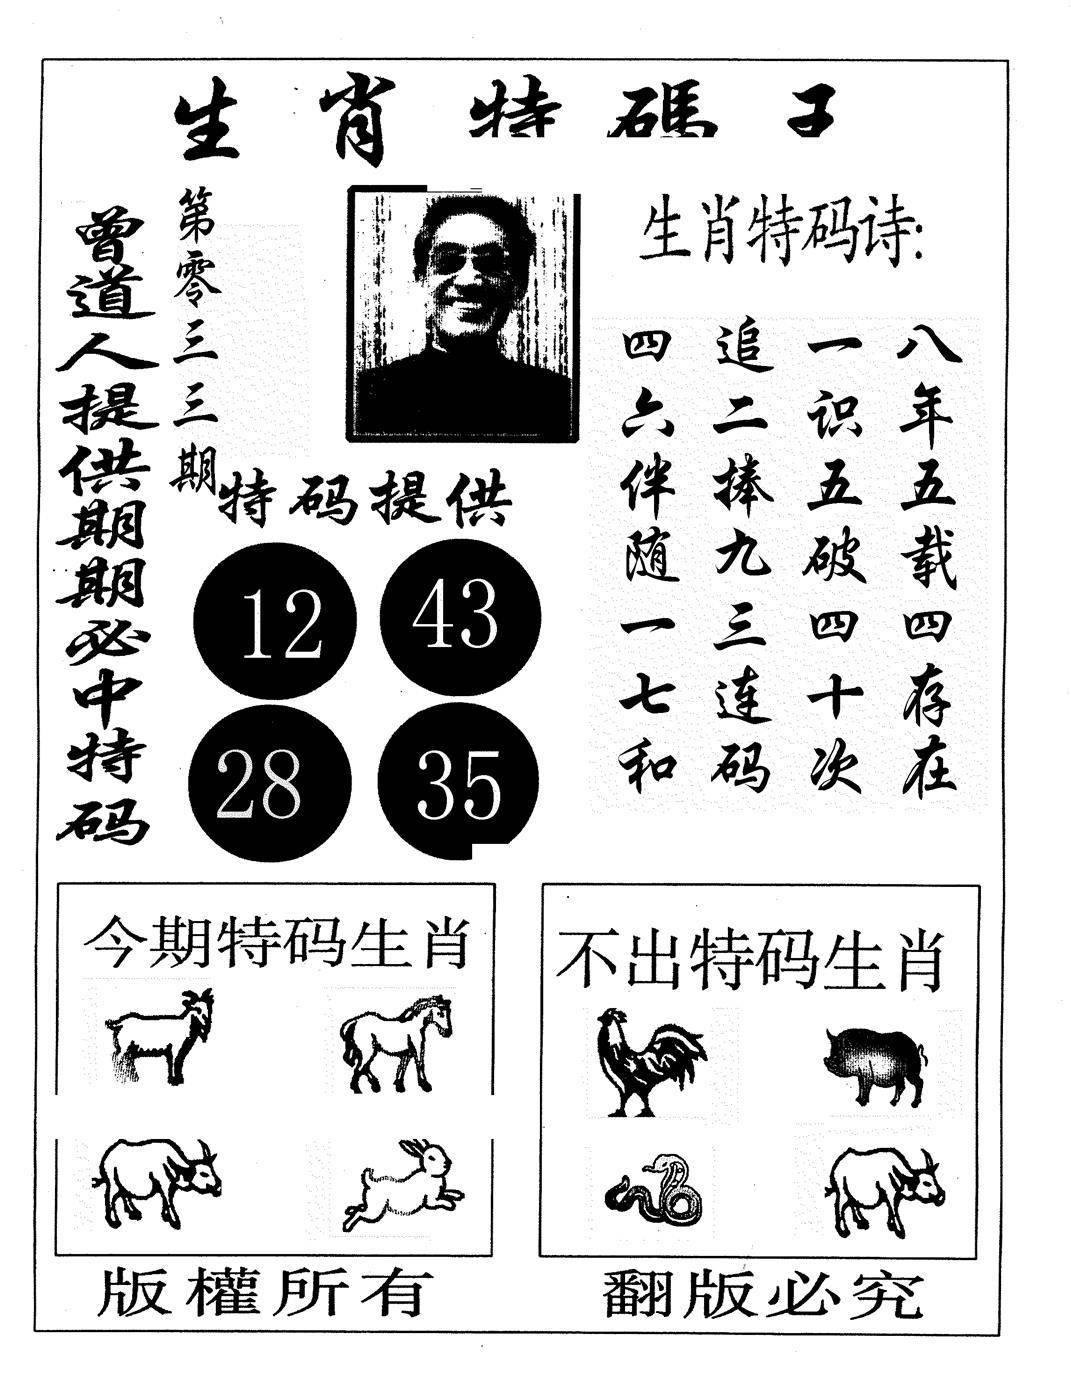 生肖特碼
曾道人提供期期必中特码
第零三三期
生肖特码诗:
八年五载四存在
一识五破四十次
追二捧九三连码
四六伴随一七和
特码提供
12 43
28 35
今期特码生肖
不出特码生肖
版權所有
翻版必究